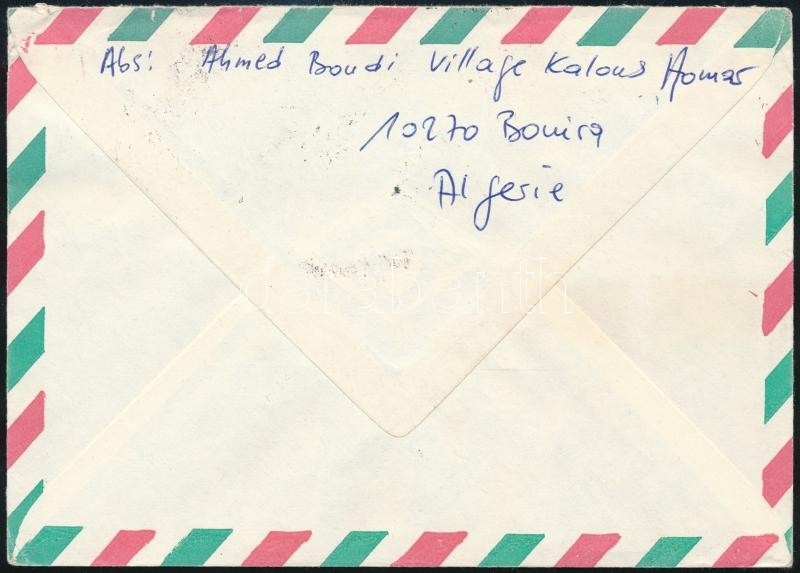 Abs: Ahmed Boudi Village Kalous Aomar
10270 Bouira
Algerie
darabanth